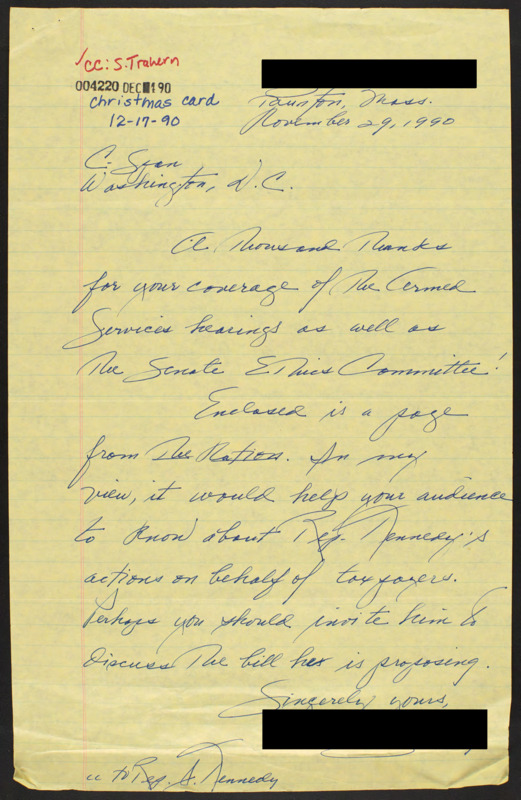 ✓cc: S. Trahern
004220 DEC 1 90
Christmas card
12-17-90
Taunton, Mass.
November 29, 1990
C-Span
Washington, D.C.
A Thousand Thanks
for your coverage of The Armed
Services hearings as well as
The Senate Ethics Committee!
Enclosed is a page
from The Nation. In my
view, it would help your audience
to know about Rep. Kennedy's
actions on behalf of taxpayers.
Perhaps you should invite him to
discuss The bill he is proposing.
Sincerely yours,
cc to Rep. J. Kennedy